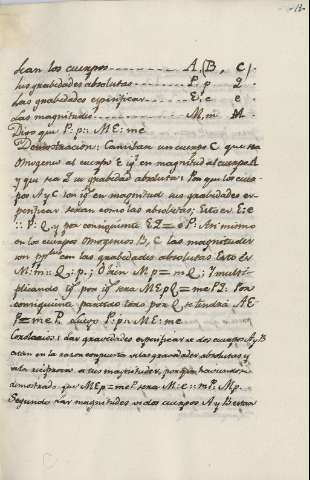 Sean los cuerpos - - - - - - - A, (B, C).
sus grabedades absolutas - - - - P: p 2
Las grabedades espesificas - - - - E: e e
Las magnitudes - - - - - - - M, m M
Digo que P: p:: ME: me
Demostracion: Cavultan un cuerpo C que sea
omogeneo al cuerpo en magnitud al cuerpo A
y que sea 2 su grabedad absoluta: Porque los cuer-
pos A y C son en magnitud sus grabedades es-
pesificas seran como las absolutas; Esto es E: e
:: P: Q, y por consiguiente EQ = eP: Asi mismo
en los cuerpos omogenios B, C las magnitudes
son con las grabedades absolutas. Esto es
M: m:: Q: p; O bien Mp = mQ; Y multi-
plicando por sera MEpQ = mePQ. Por
consiguiente partido todo por Q se tendra ME-
p = meP. Luego P: p:: ME: me
Corolario: 1 las gravedades espesificas de dos cuerpos A y B
estan en la razon compuesta de las gravedades absolutas y
de la reciproca a sus magnitudes, porque haviendose
demostrado que MEp = meP sera E: e:: mP: Mp.
Segundo las magnitudes de dos cuerpos A y B estan